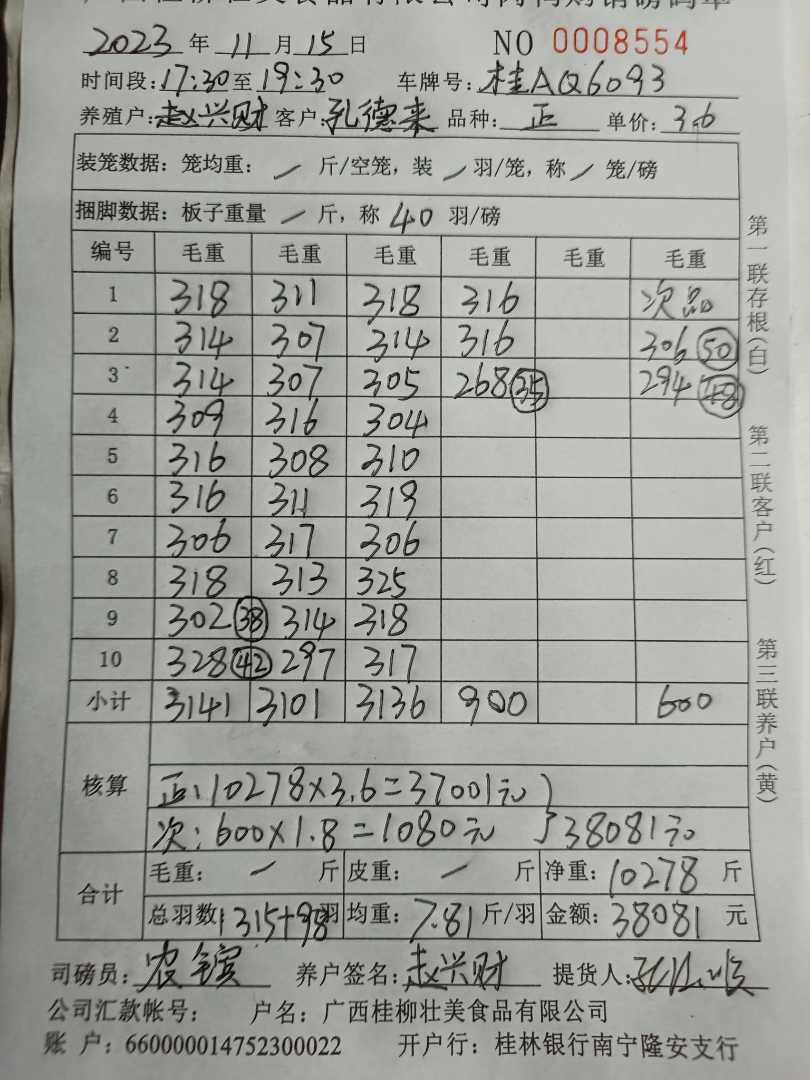 2023 年 11 月 15 日 NO 0008554
时间段: 17:30 至 19:30 车牌号: 桂AQ6093
养殖户: 赵兴财 客户: 孔德来 品种: 正 单价: 3.6
装笼数据: 笼均重: / 斤/空笼, 装 / 羽/笼, 称 / 笼/磅
捆脚数据: 板子重量 / 斤, 称 40 羽/磅
编号 毛重 毛重 毛重 毛重 毛重 毛重
1 318 311 318 316 次品
2 314 307 314 316 306 50
3 314 307 305 268 35 294 48
4 309 316 304
5 316 308 310
6 316 311 319
7 306 317 306
8 318 313 325
9 302 38 314 318
10 328 42 297 317
小计 3141 3101 3136 900 600
核算
正: 10278×3.6=37001元
次: 600×1.8=1080元 38081元
合计
毛重: - 斤 皮重: - 斤 净重: 10278 斤
总羽数 1315+98 羽 均重: 7.81 斤/羽 金额: 38081 元
司磅员: 农 养户签名: 赵兴财 提货人:
公司汇款帐号: 户名: 广西桂柳壮美食品有限公司
账 户: 660000014752300022 开户行: 桂林银行南宁隆安支行
第一联存根(白)
第二联客户(红)
第三联养户(黄)